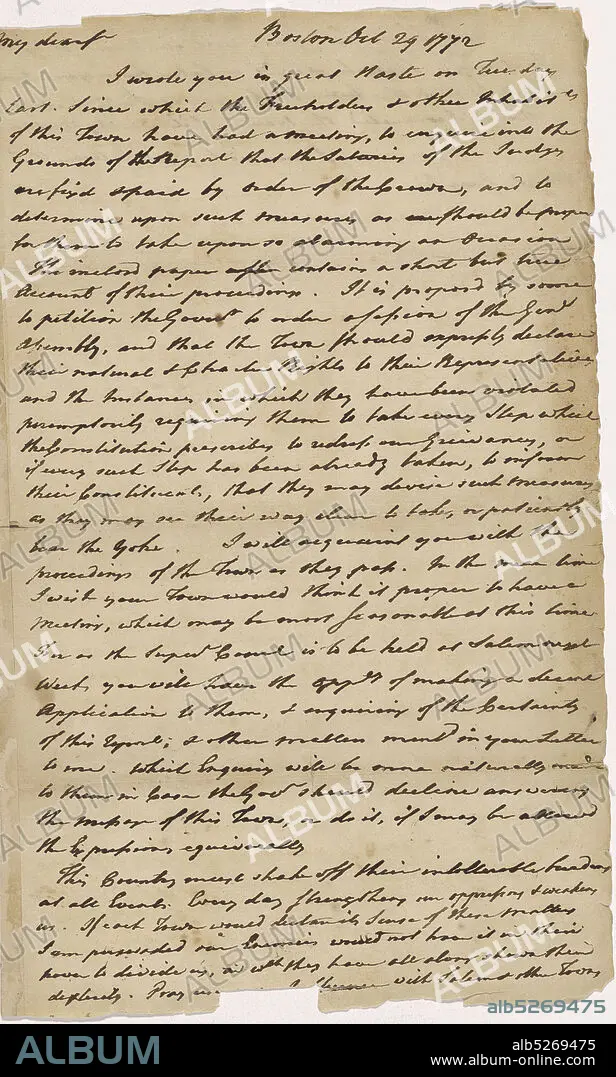 My dear Sr Boston Oct 29 1772
I wrote you in great Haste on Tuesday
last. Since which the Freeholders & other Inhabits
of this Town have had a meeting, to enquire into the
Grounds of the Report that the Salaries of the Judges
are fixd & paid by order of the Crown, and to
determine upon such measures as should be proper
for them to take upon so alarming an Occasion
The inclosd paper contains a short but true
Account of their proceedings. It is proposd by some
to petition the Govr to order a session of the Genl
Assembly, and that the Town should expressly declare
their natural & Charter Rights to their Representatives
and the Instances in which they have been violated
peremptorily requiring them to take every Step which
the Constitution prescribes to redress our Grievances, or
if every such Step has been already taken, to inform
their Constituents, that they may devise such measures
as they may see their way clear to take, or patiently
bear the Yoke. I will acquaint you with the
proceedings of the Town as they pass. In the mean time
I wish your Town would think it proper to have a
Meeting, which may be most seasonable at this time
For as the Superr Court is to be held at Salem next
Week, you will have the oppty of making a decent
Application to them, & enquiring of the Certainty
of this report; & other matters mentd in your Letter
to me. Which Enquiry will be more naturally made
to them in Case the Govr should decline answering
the message of this Town, or do it, if I may be allowed
the Expression, equivocally
This Country must shake off their intollerable burdens
at all Events. Every day strengthens our oppressors & weakens
us. If each Town would declare its Sense of these Matters
I am perswaded our Enemies would not have it in their
power to divide us, in wch they have all along shown their
dexterity. Pray with Salem & other Towns
ALBUM
alb5269475
alb5269475
www.album-online.com